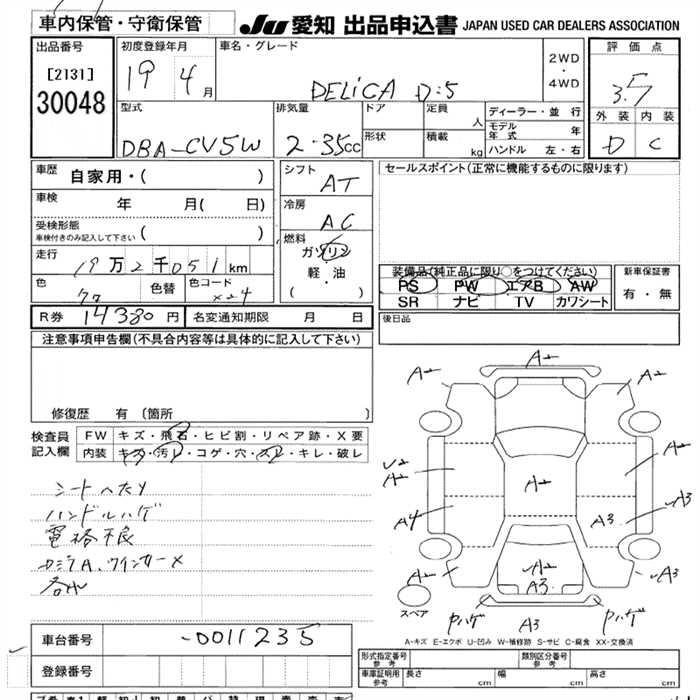 車内保管・守衛保管
JU 愛知 出品申込書 JAPAN USED CAR DEALERS ASSOCIATION
出品番号
[2131]
30048
初度登録年月
19 4月
車名・グレード
DELICA D:5
2WD
・
4WD
評価点
3.5
外装 内装
D C
型式
DBA-CV5W
排気量
2.35cc
ドア
形状
定員 人
積載 kg
ディーラー・並行
モデル年式 年
ハンドル 左・右
車歴 自家用・( )
車検 年 月( 日)
受検形態
車検付きのみ記入して下さい ( )
走行 19万2千051km
色 クロ 色替 色コード X24
シフト AT
冷房 AC
燃料
ガソリン
軽・油
( )
セールスポイント(正常に機能するものに限ります)
装備品(純正品に限り○をつけてください)
PS PW エアB AW
SR ナビ TV カワシート
新車保証書
有・無
R券 14380円 名変通知期限 月 日
後日品
注意事項申告欄(不具合内容等は具体的に記入して下さい)
修復歴 有 〔箇所 〕
検査員記入欄
FW キズ・飛石・ヒビ割・リペア跡・X要
内装 キズ・汚レ・コゲ・穴・スレ・キレ・破レ
シートヘタリ
ハンドルハゲ
電格不良
カジリA、ウインカーX
A2 A2 A2
U2
A2 A2 A2
A3
A4 A3
A2 A2
A3 A3
スペア
Pハゲ A3 Pハゲ
A-キズ E-エクボ U-凹み W-補修跡 S-サビ C-腐食 XX-交換済
車台番号 -0011235
登録番号
形式指定番号 参考
類別区分番号 参考
車庫証明用 参考 長さ cm 幅 cm 高さ cm